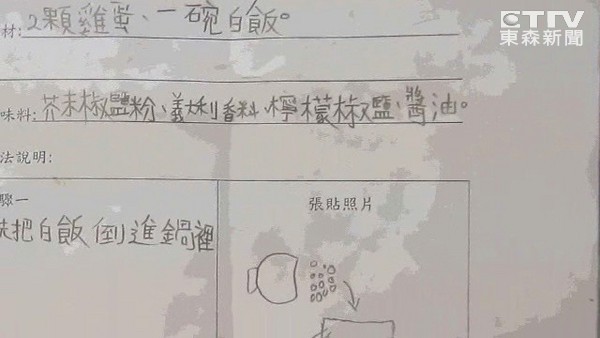 CTTV
東森新聞
材:2顆雞蛋、一碗白飯。
味料:芥末椒鹽粉、義大利香料、檸檬椒鹽、醬油。
法說明:
驟一
把白飯倒進鍋裡
張貼照片